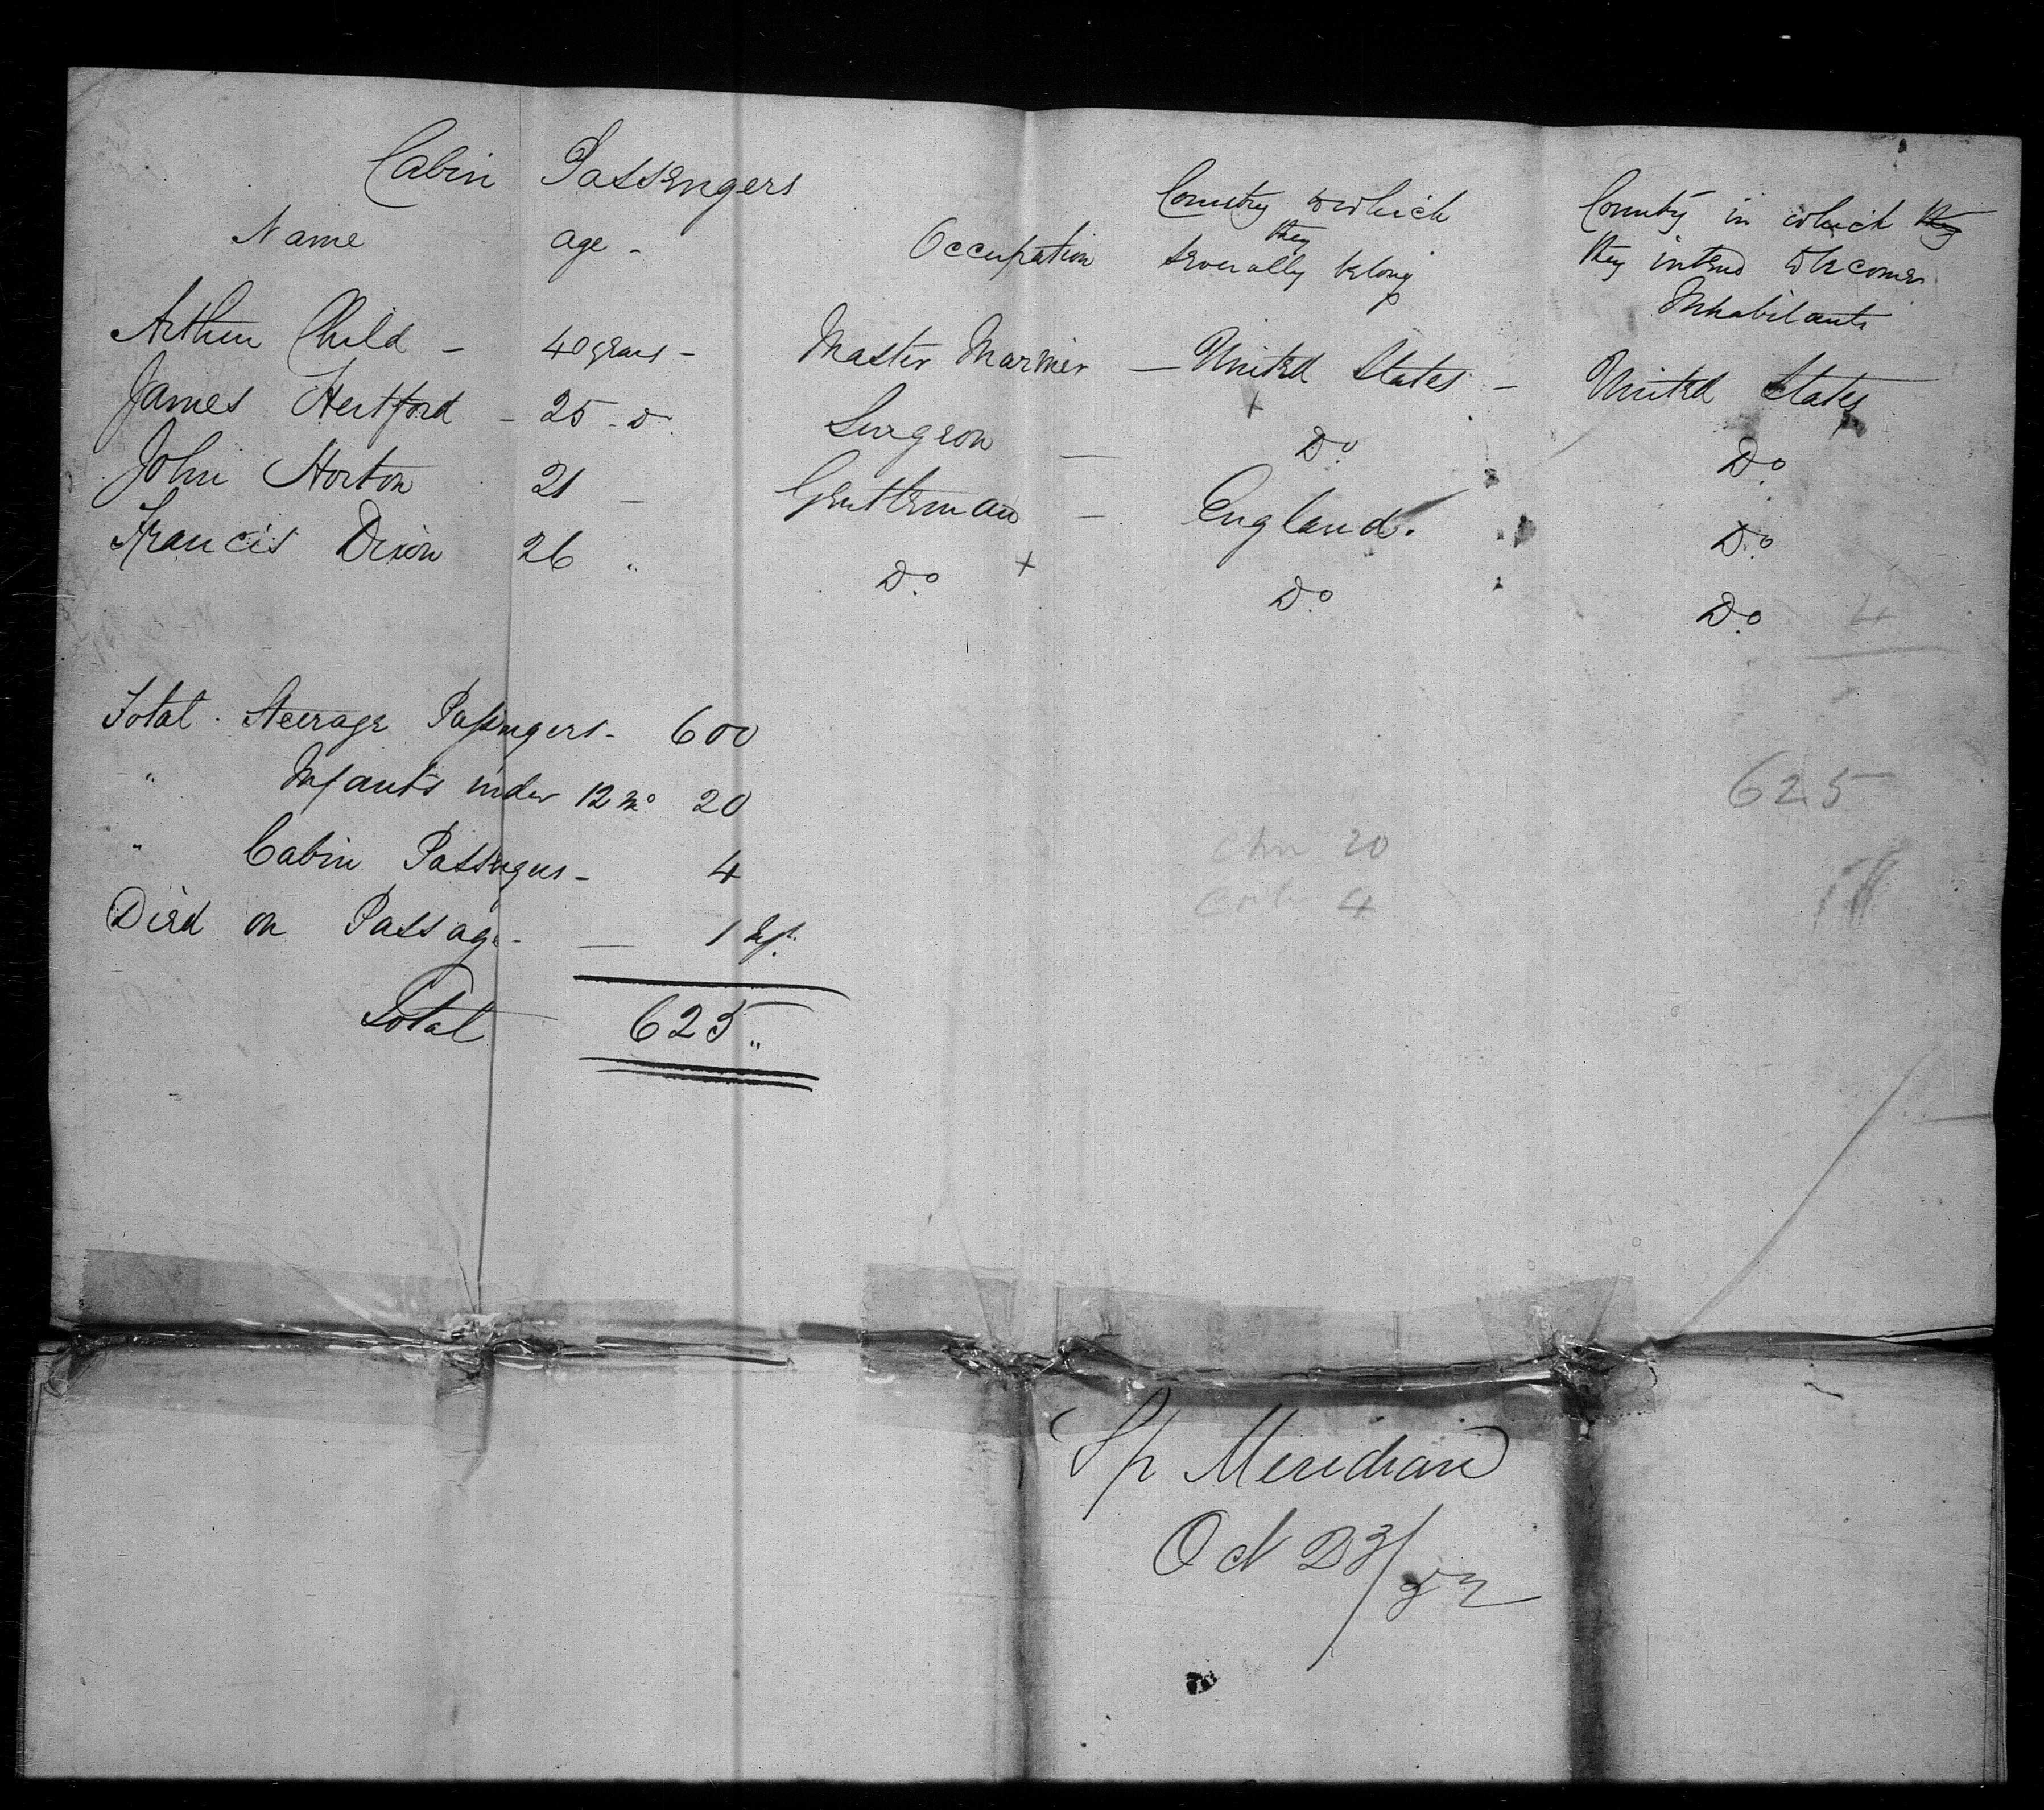 Cabin Passengers
Name age - Occupation Country to which they severally belong Country in which they they intend to become Inhabitants
Arthur Child - 40 years - Master Mariner - United States - United States
James Hertford - 25 - Do. Surgeon - Do. Do.
John Horton 21 - Gentleman - England. Do.
Francis Dixon 26 " Do. + Do. Do. 4
Total . Steerage Passengers - 600
" Infants under 12 Mo 20
625
" Cabin Passengers - 4
chn 20
cab 4
Died on Passage - 1 Inft.
Total 625 "
Sp Meridian
Oct 23/52